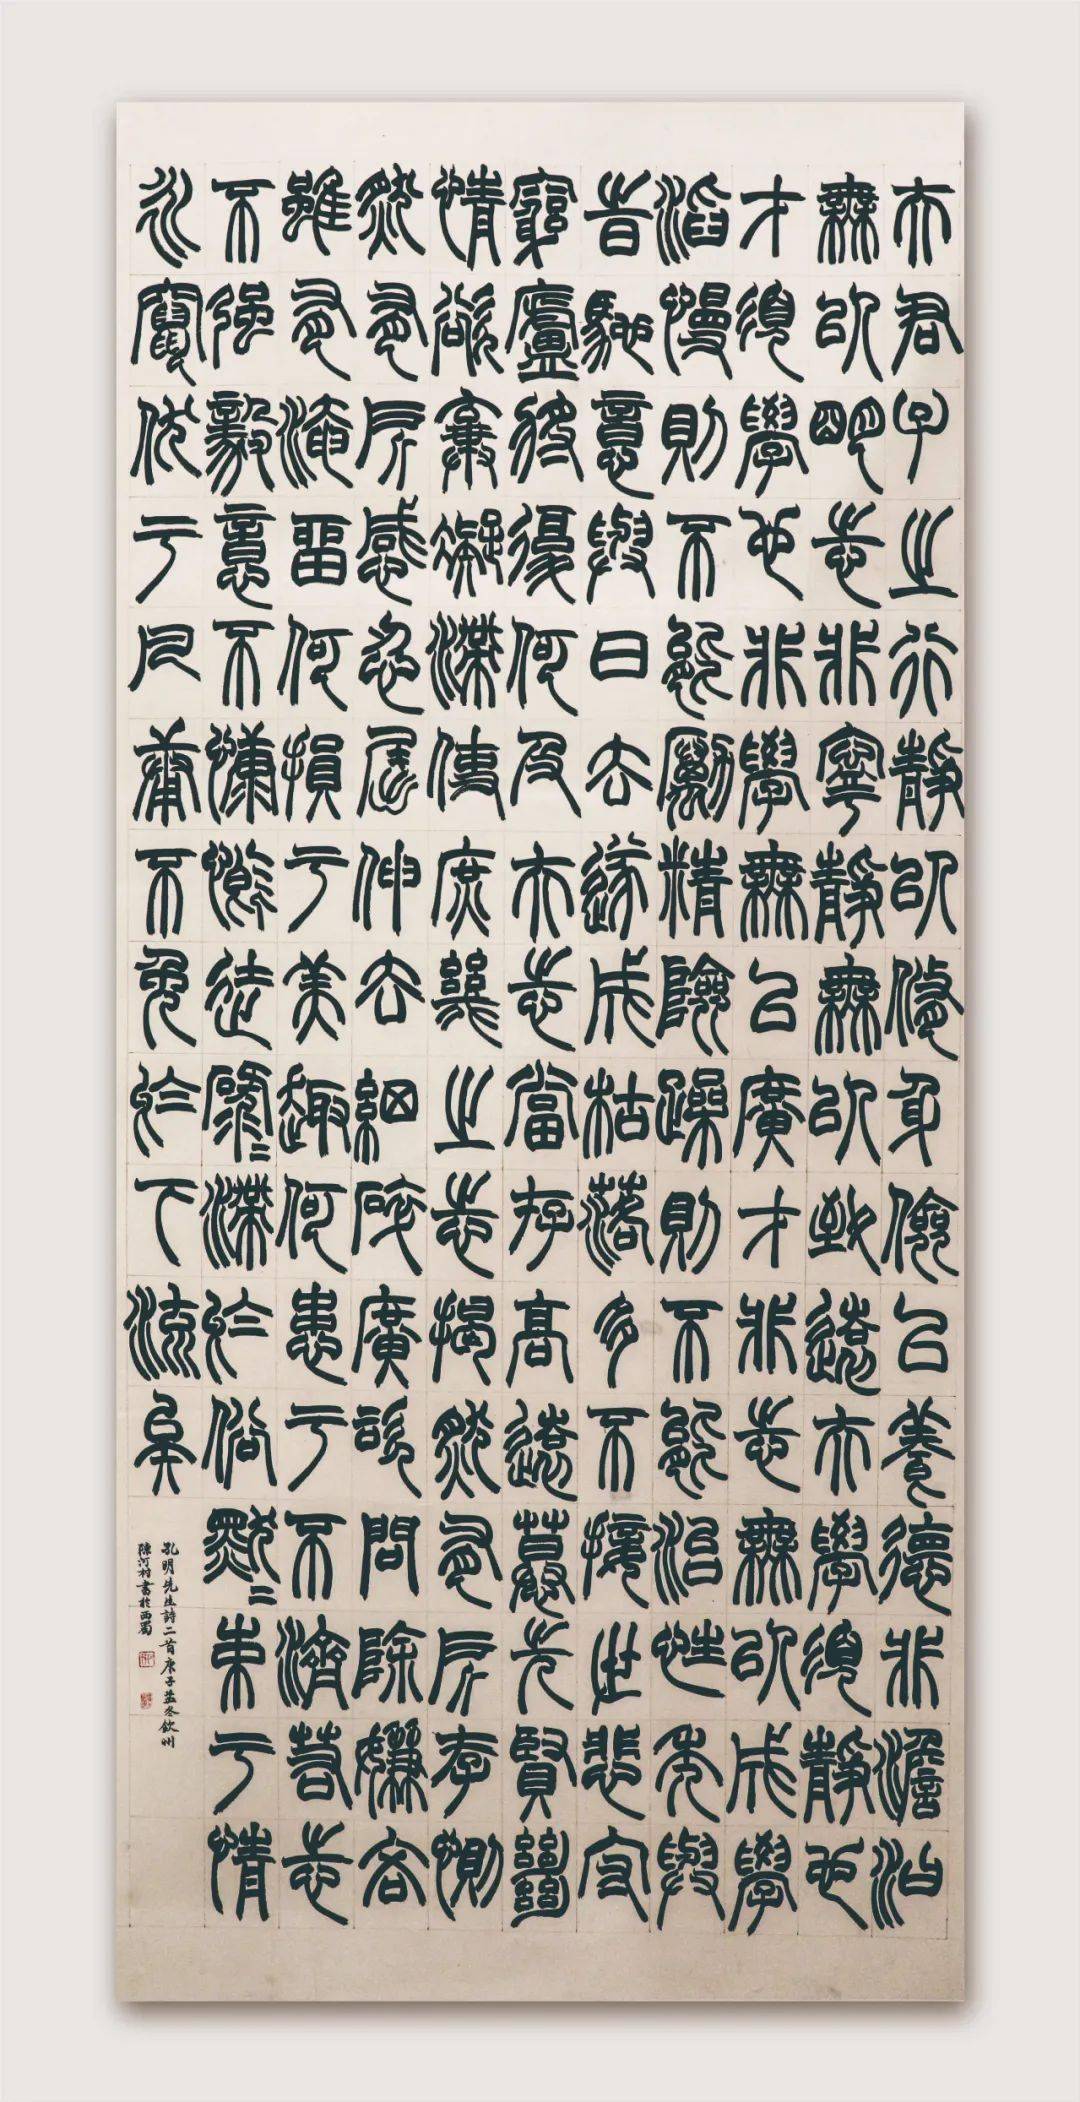 夫君子之行靜以修身儉以養德非澹泊
無以明志非寧靜無以致遠夫學須靜也
才須學也非學無以廣才非志無以成學
滔慢則不能勵精險躁則不能治性年與
時馳意與日去遂成枯落多不接世悲守
窮廬將復何及夫志當存高遠慕先賢絕
情欲棄凝滯使庶幾之志揭然有所存惻
然有所感忍屈伸去細碎廣咨問除嫌吝
雖有淹留何損于美趣何患于不濟若志
不強毅意不慷慨徒碌碌滯於俗默默束于情
永竄伏于凡庸不免於下流矣
孔明先生詩二首庚子孟冬欽州
陳河村書於西蜀